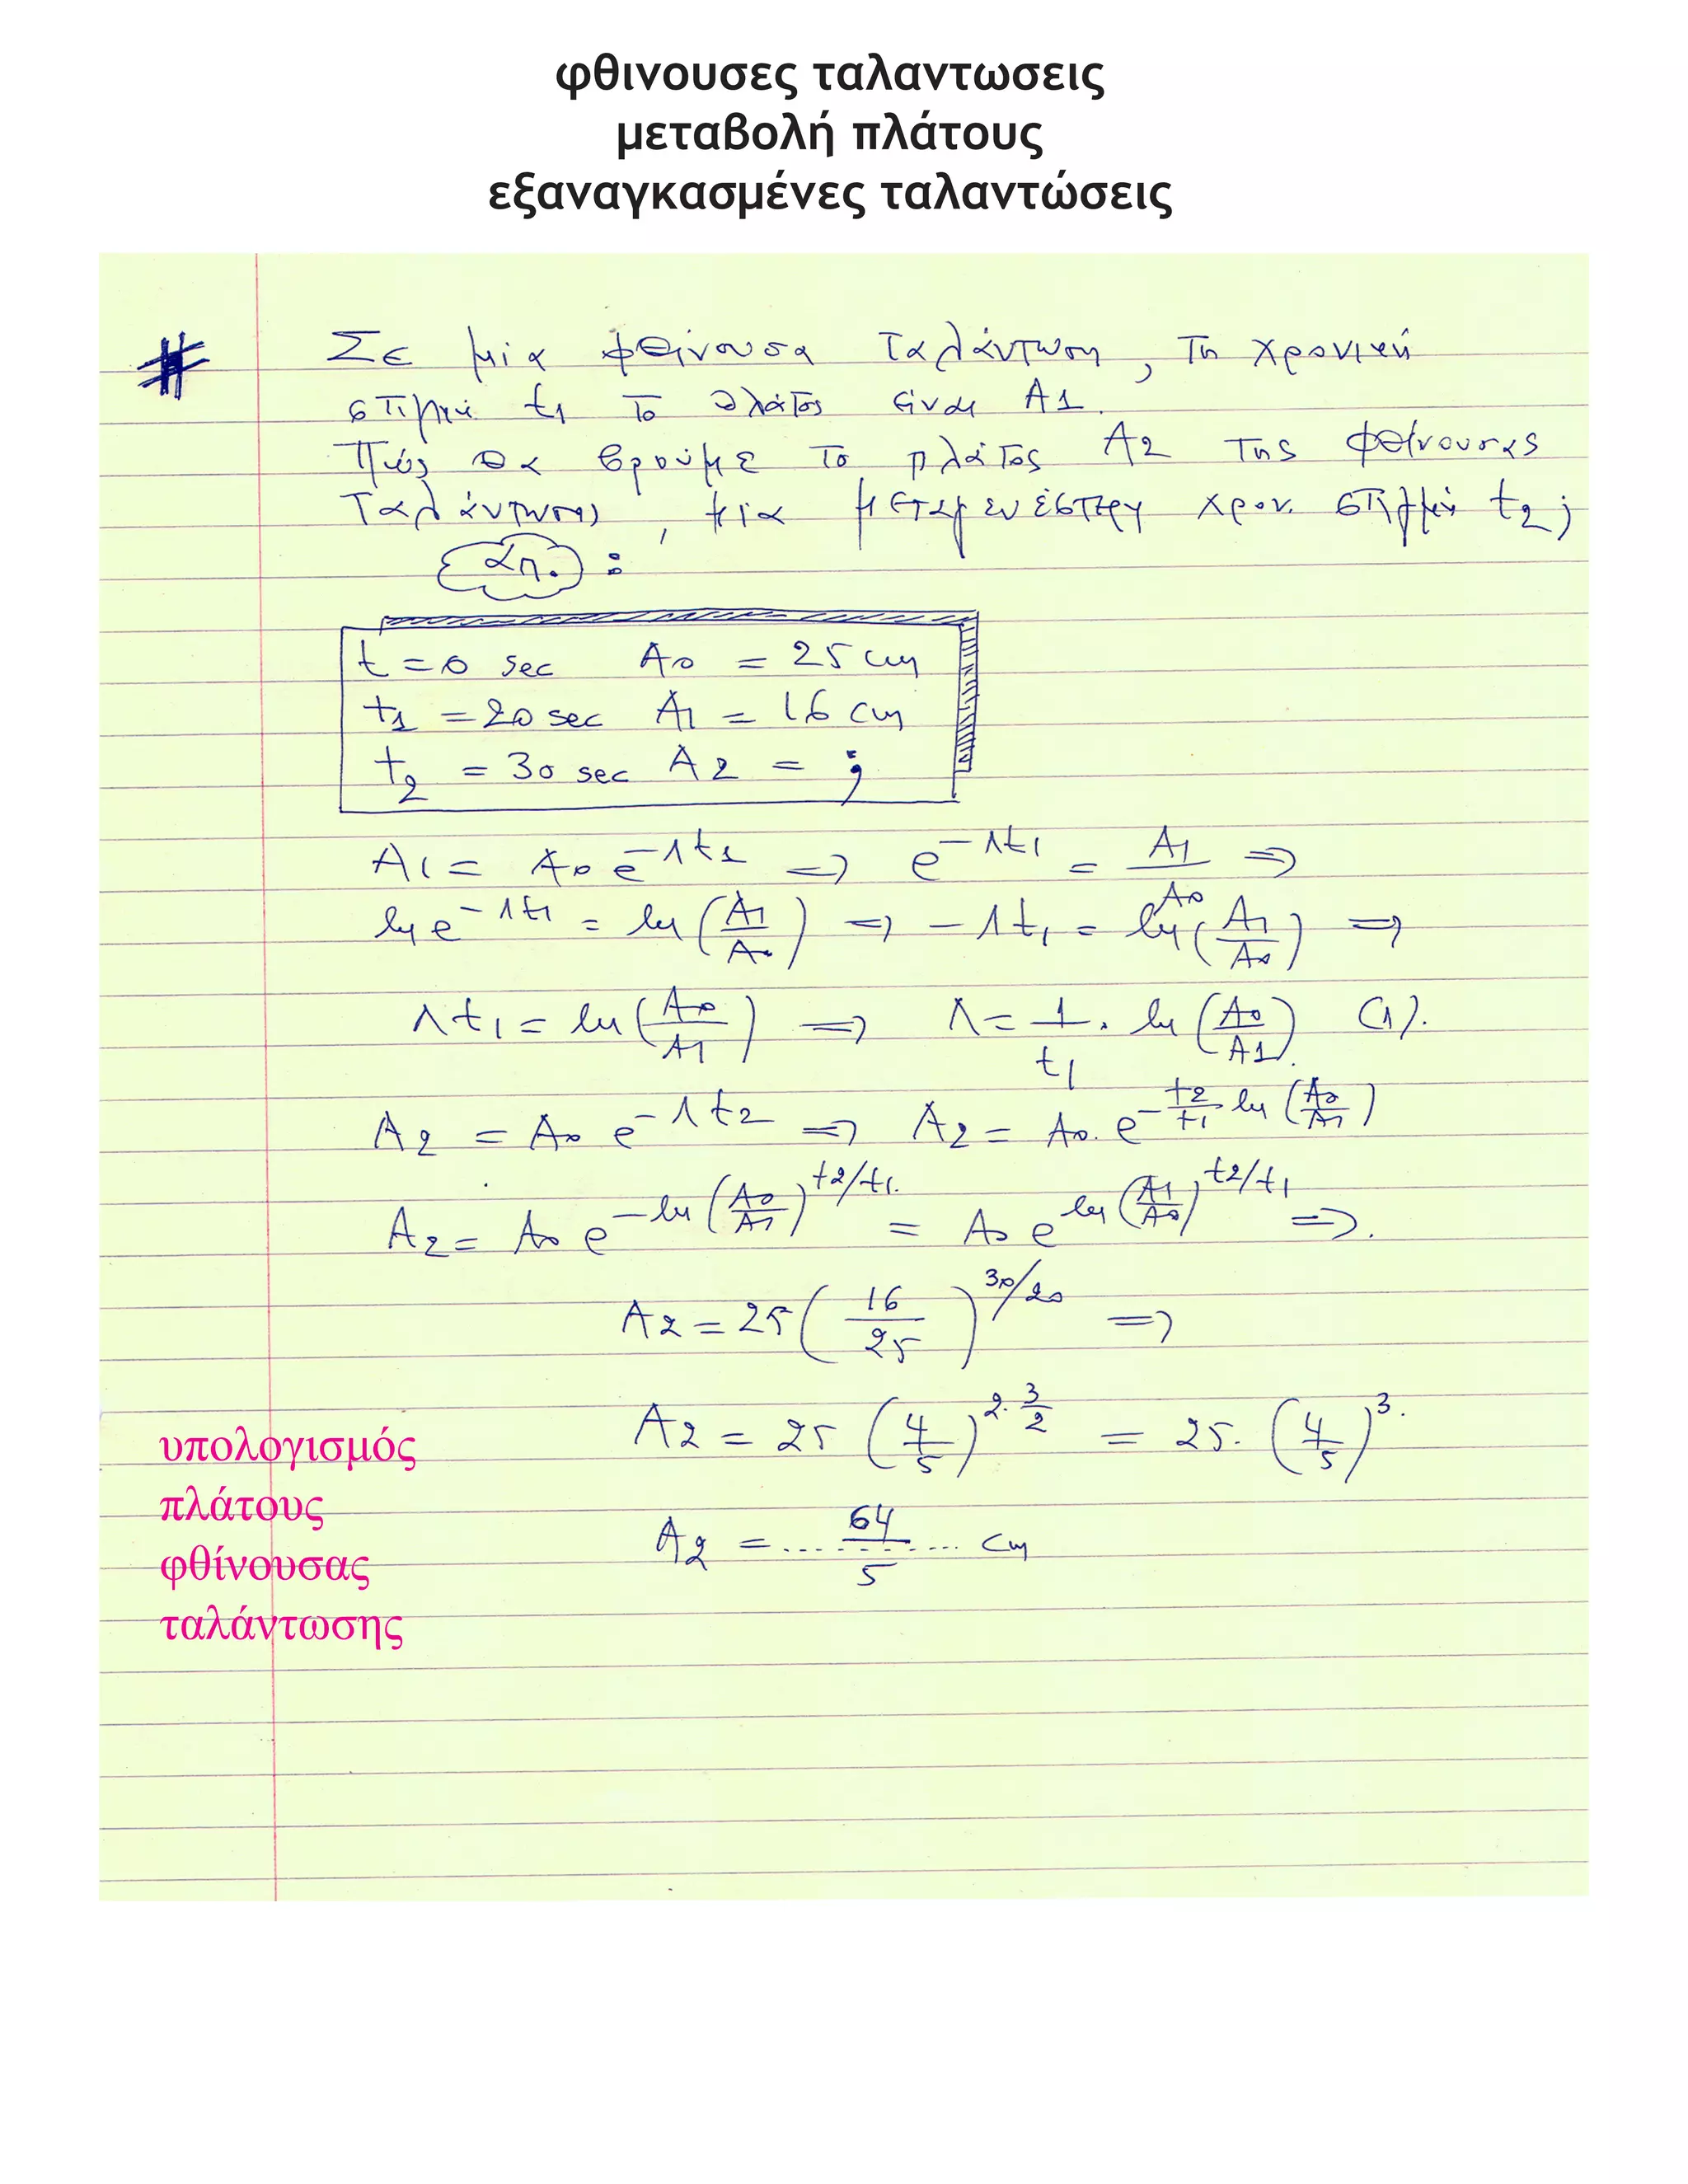 φθινουσες ταλαντωσεις
μεταβολή πλάτους
εξαναγκασμένες ταλαντώσεις
# Σε μία φθίνουσα ταλάντωση, τη χρονική
στιγμή t1 το πλάτος είναι A1.
Πώς θα βρούμε το πλάτος A2 της φθίνουσας
ταλάντωσης, μία μεταγενέστερη χρον. στιγμή t2;
απ. :
t = 0 sec A0 = 25 cm
t1 = 20 sec A1 = 16 cm
t2 = 30 sec A2 = ;
A1 = A0 e^{-Λt1} ⇒ e^{-Λt1} = A1/A0 ⇒
ln e^{-Λt1} = ln(A1/A0) ⇒ -Λt1 = ln(A1/A0) ⇒
Λt1 = ln(A0/A1) ⇒ Λ = 1/t1 . ln(A0/A1) (1).
A2 = A0 e^{-Λt2} ⇒ A2 = A0. e^{-t2/t1 ln(A0/A1)}
A2 = A0 e^{-ln(A0/A1)^{t2/t1}} = A0 e^{ln(A1/A0)^{t2/t1}} ⇒.
A2 = 25(16/25)^{30/20} ⇒
A2 = 25(4/5)^{2.3/2} = 25.(4/5)^{3}.
υπολογισμός
πλάτους
φθίνουσας
ταλάντωσης
A2 = ... 64/5 ... cm